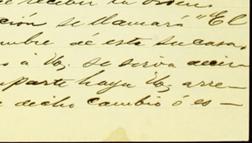 de recibir la orden
ción se llamará "El
mbre dé esta su casa,
s á V., se sirva decir
parte haya V., arre-
e dicho cambio ó es-